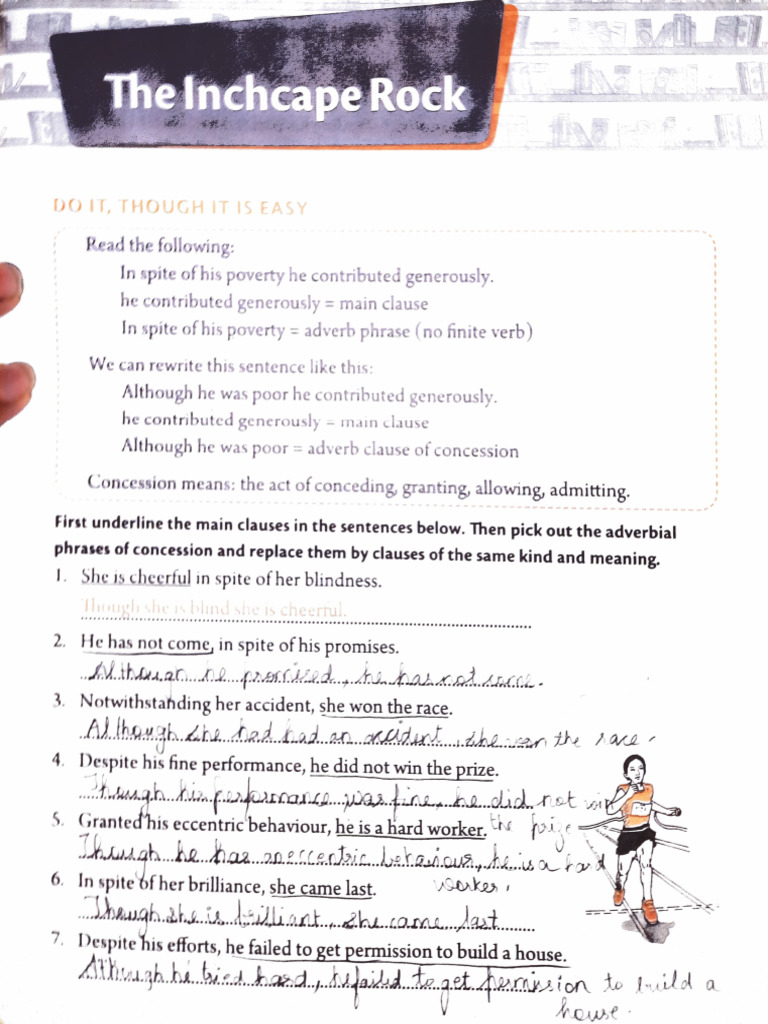 The Inchcape Rock
DO IT, THOUGH IT IS EASY
Read the following:
In spite of his poverty he contributed generously.
he contributed generously = main clause
In spite of his poverty = adverb phrase (no finite verb)
We can rewrite this sentence like this:
Although he was poor he contributed generously.
he contributed generously = main clause
Although he was poor = adverb clause of concession
Concession means: the act of conceding, granting, allowing, admitting.
First underline the main clauses in the sentences below. Then pick out the adverbial
phrases of concession and replace them by clauses of the same kind and meaning.
1. She is cheerful in spite of her blindness.
Though she is blind she is cheerful.
2. He has not come, in spite of his promises.
Although he promised, he has not come.
3. Notwithstanding her accident, she won the race.
Although she had had an accident, she won the race.
4. Despite his fine performance, he did not win the prize.
Though his performance was fine, he did not win
the prize
5. Granted his eccentric behaviour, he is a hard worker.
Though he has an eccentric behaviour, he is a hard
worker.
6. In spite of her brilliance, she came last.
Though she is brilliant, she came last
7. Despite his efforts, he failed to get permission to build a house.
Although he tried hard, he failed to get permission to build a
house.